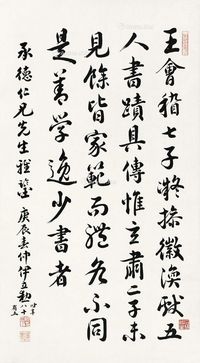 王會稽七子凝操徽渙獻五
人書蹟具傳惟立肅二子未
見餘皆家範而體各不同
是善學逸少書者
承德仁兄先生雅鑒
庚辰春仲伊立勳
時年八十有五